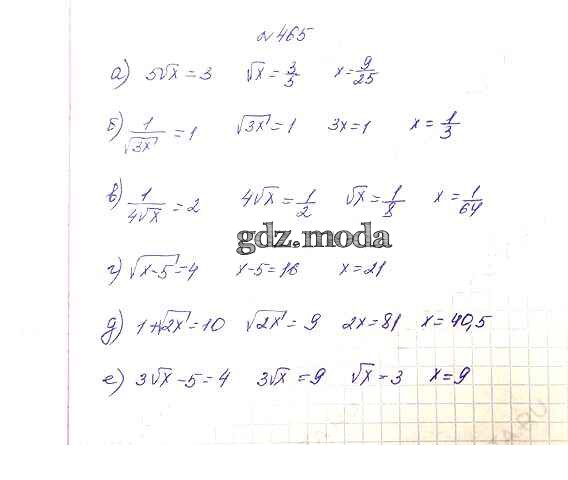 №465
а) 5√x = 3 √x = 3/5 x = 9/25
б) 1/√3x = 1 √3x = 1 3x = 1 x = 1/3
в) 1/4√x = 2 4√x = 1/2 √x = 1/8 x = 1/64
gdz.moda
г) √x-5 = 4 x-5 = 16 x = 21
д) 1+√2x = 10 √2x = 9 2x = 81 x = 40,5
е) 3√x - 5 = 4 3√x = 9 √x = 3 x = 9